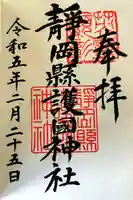 奉拝
靜岡縣護國神社
令和五年二月二十五日